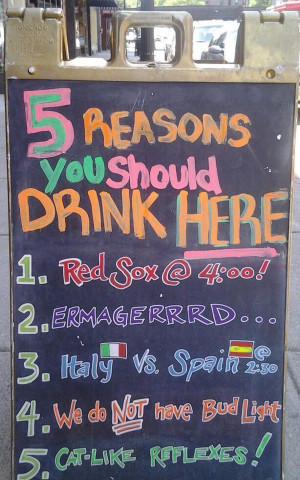 5 REASONS
you Should
DRINK HERE
1. Red Sox @ 4:00!
2. ERMAGERRRD...
3. Italy Vs. Spain @ 2:30
4. We do NOT have Bud Light
5. CAT-LIKE REFLEXES!